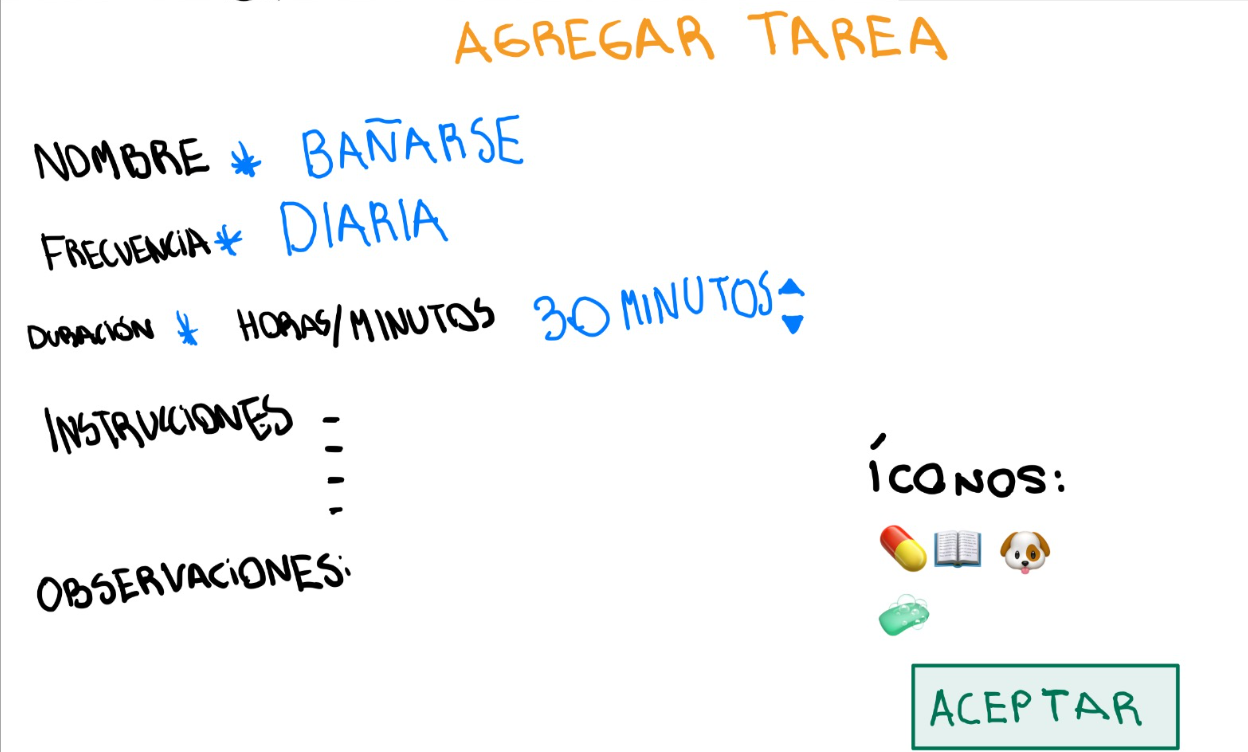 AGREGAR TAREA
NOMBRE * BAÑARSE
FRECUENCIA * DIARIA
DURACIÓN * HORAS/MINUTOS 30 MINUTOS
INSTRUCCIONES -
-
-
-
ÍCONOS:
OBSERVACIONES:
ACEPTAR